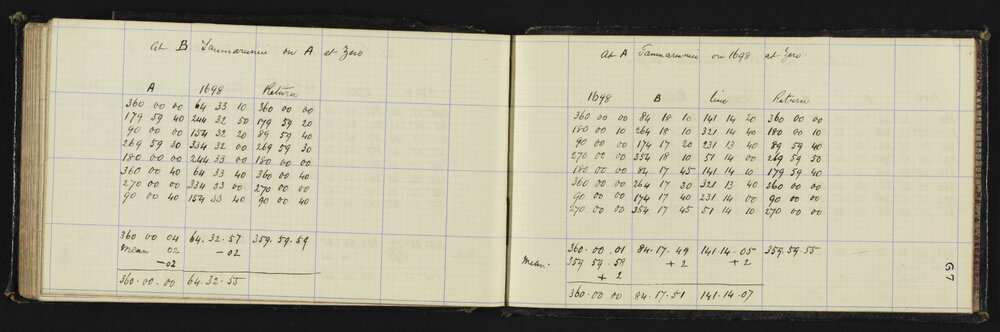 At B Taumarunui on A at Zero
A 1698 Return
360 00 00 64 33 10 360 00 00
179 59 40 244 32 50 179 59 20
90 00 00 154 32 20 89 59 40
269 59 30 334 32 00 269 59 30
180 00 00 244 33 00 180 00 00
360 00 40 64 33 40 360 00 40
270 00 00 334 33 00 270 00 00
90 00 40 154 33 40 90 00 40
360 00 04 64.32.57 359.59.59
mean 02 -02
-02
360.00.00 64.32.55
At A Taumarunui on 1698 at Zero
1698 B line Return
360 00 00 84 18 10 141 14 20 360 00 00
180 00 10 264 18 10 321 14 40 180 00 10
90 00 00 174 17 20 231 13 40 89 59 40
270 00 00 354 18 10 51 14 00 269 59 50
180 00 00 84 17 45 141 14 10 179 59 40
360 00 00 264 17 30 321 13 40 360 00 00
90 00 00 174 17 40 231 14 00 90 00 00
270 00 00 354 17 45 51 14 10 270 00 00
360.00.01 84.17.49 141.14.05 359.59.55
mean. 359 59.58 +2 +2
+2
360.00 00 84.17.51 141.14.07
67